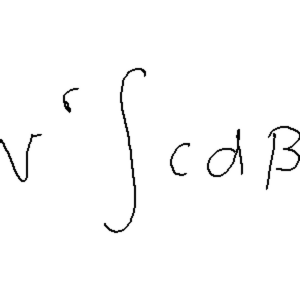 v^σ ∫ c d β